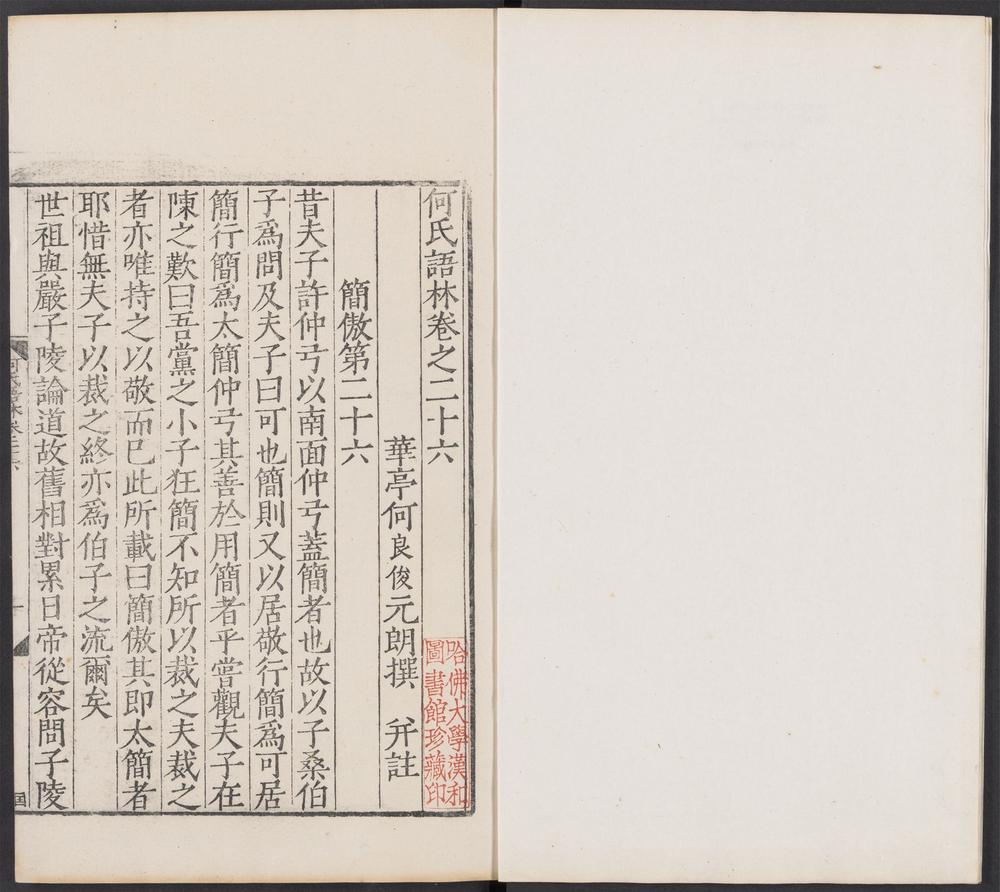 何氏語林卷之二十六
華亭何良俊元朗撰并註
簡傲第二十六
昔夫子許仲弓以南面仲弓蓋簡者也故以子桑伯
子爲問及夫子曰可也簡則又以居敬行簡爲可居
簡行簡爲太簡仲弓其善於用簡者乎嘗觀夫子在
陳之歎曰吾黨之小子狂簡不知所以裁之夫裁之
者亦唯持之以敬而已此所載曰簡傲其即太簡者
耶惜無夫子以裁之終亦爲伯子之流爾矣
世祖與嚴子陵論道故舊相對累日帝從容問子陵
哈佛大學漢和
圖書館珍藏印